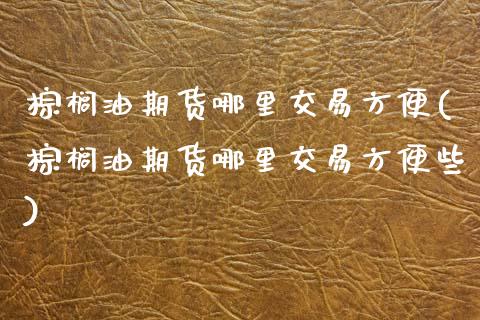 棕榈油期货哪里交易方便(
棕榈油期货哪里交易方便些
)